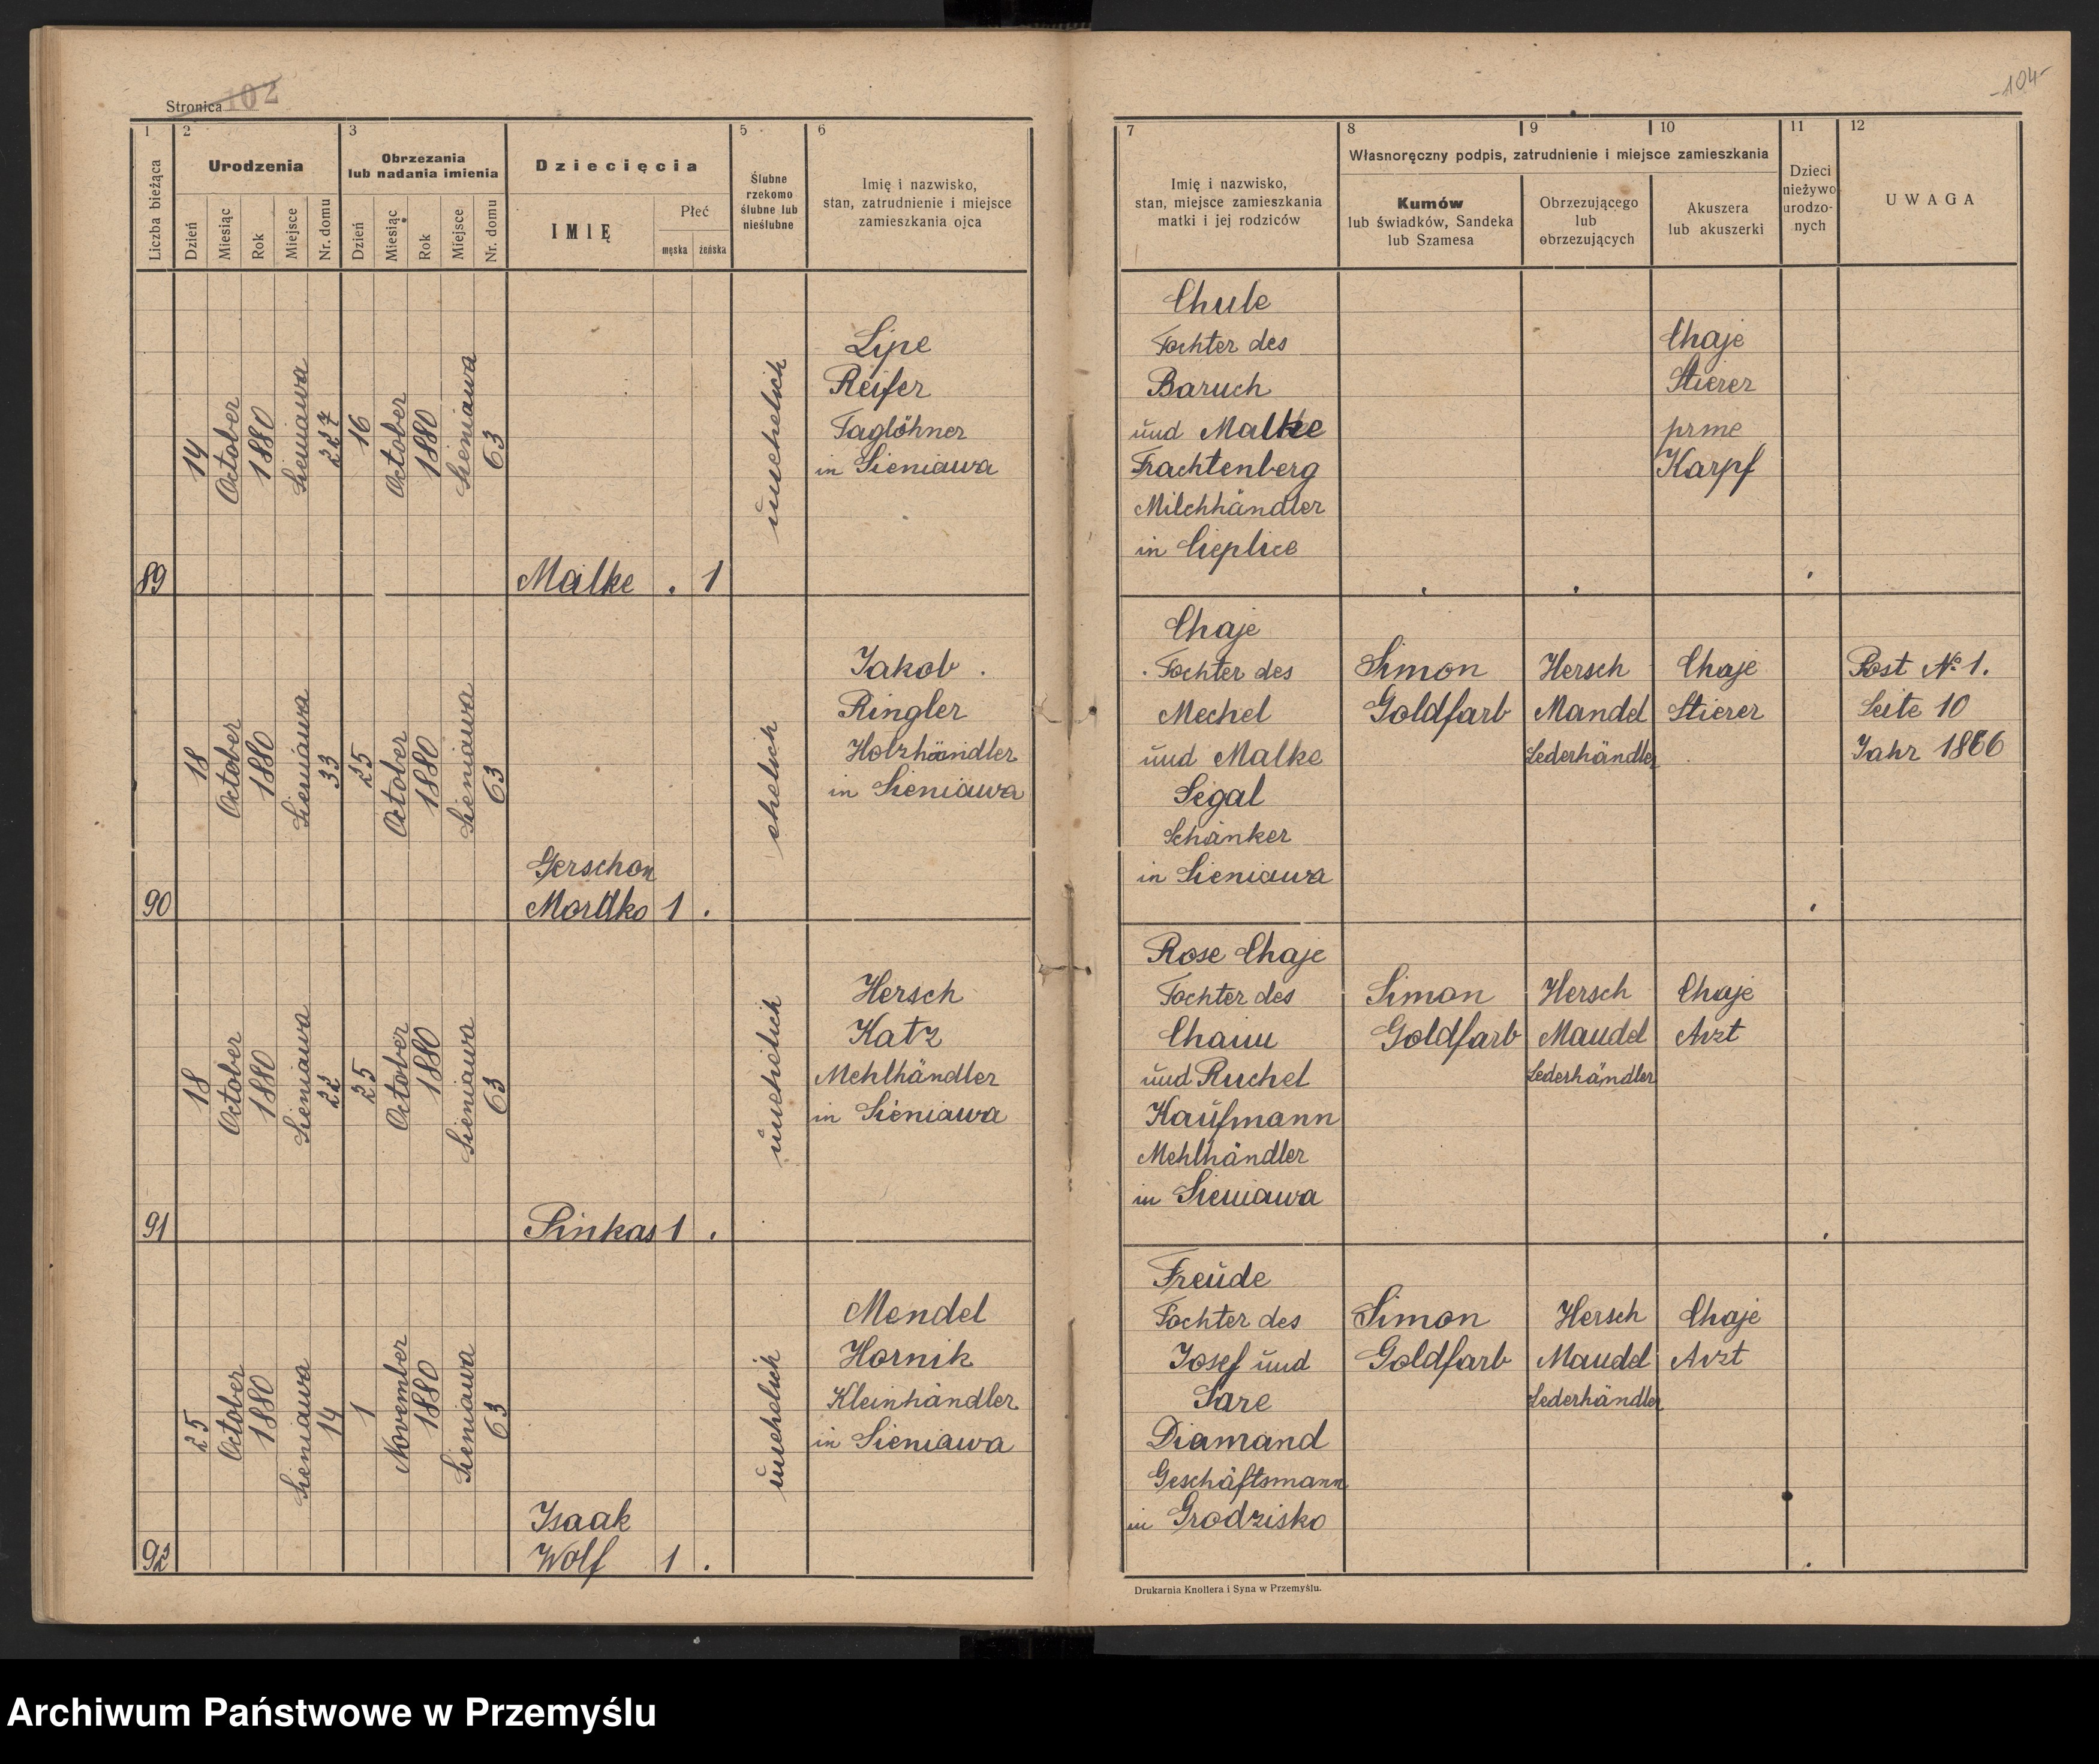 Stronica 102
-104-
1
2
3
5
6
7
8
9
10
11
12
Liczba bieżąca
Urodzenia
Obrzezania
lub nadania imienia
Dziecięcia
Ślubne
rzekomo
ślubne lub
nieślubne
Imię i nazwisko,
stan, zatrudnienie i miejsce
zamieszkania ojca
Dzień
Miesiąc
Rok
Miejsce
Nr. domu
Dzień
Miesiąc
Rok
Miejsce
Nr. domu
IMIĘ
Płeć
męska
żeńska
Imię i nazwisko,
stan, miejsce zamieszkania
matki i jej rodziców
Własnoręczny podpis, zatrudnienie i miejsce zamieszkania
Kumów
lub świadków, Sandeka
lub Szamesa
Obrzezującego
lub
obrzezujących
Akuszera
lub akuszerki
Dzieci
nieżywo
urodzo-
nych
UWAGA
89
14
October
1880
Sieniawa
227
16
October
1880
Sieniawa
63
Malke . 1
unehelich
Lipe
Reifer
Taglöhner
in Sieniawa
Chule
Tochter des
Baruch
und Malke
Frachtenberg
Milchhändler
in Cieplice
Chaje
Stierer
prme
Karpf
90
18
October
1880
Sieniawa
33
25
October
1880
Sieniawa
63
Gerschon
Mordko 1 .
ehelich
Jakob
Ringler
Holzhändler
in Sieniawa
Chaje
Tochter des
Mechel
und Malke
Segal
Schänker
in Sieniawa
Simon
Goldfarb
Hersch
Mandel
Lederhändler
Chaje
Stierer
Post No 1.
Seite 10
Jahr 1866
91
18
October
1880
Sieniawa
22
25
October
1880
Sieniawa
63
Pinkas 1 .
unehelich
Hersch
Katz
Mehlhändler
in Sieniawa
Rose Chaje
Tochter des
Chaim
und Ruchel
Kaufmann
Mehlhändler
in Sieniawa
Simon
Goldfarb
Hersch
Mandel
Lederhändler
Chaje
Arzt
92
25
October
1880
Sieniawa
14
1
November
1880
Sieniawa
63
Isaak
Wolf 1 .
unehelich
Mendel
Hornik
Kleinhändler
in Sieniawa
Freude
Tochter des
Josef und
Sare
Diamand
Geschäftsmann
in Grodzisko
Simon
Goldfarb
Hersch
Mandel
Lederhändler
Chaje
Arzt
Drukarnia Knollera i Syna w Przemyślu.
Archiwum Państwowe w Przemyślu